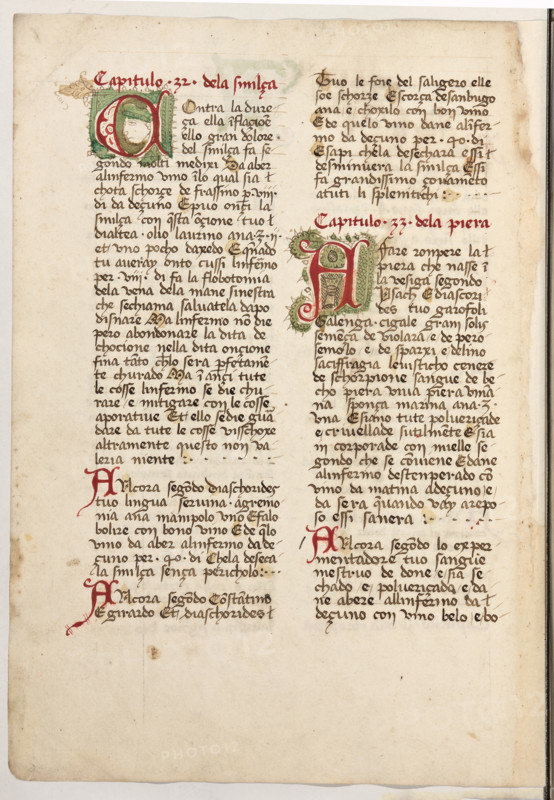 Capitulo · 32 · dela smilça
COntra la dure
ça ella īflagiōe
ello gran dolore ·
del smilça fa se
gondo molti medixi Da aber
alinfermo vino īlo qual sia l
chota schorçe de frassino p · viii ·
di da deçuno Epuo onti la
smilça con q̄sta ōçione · tuo l
dialtea · olio laurino ana · ʒ · ii ·
et vno pocho daxedo
tu averay onto cussi linfermo
per · viii · di fa la flobotomia
dela vena dela mane sinestra
che sechiama salvatela dapo
disnare Ma linfermo nō die
pero abondonare la dita de
chocione nella dita oncione
fina tāto chelo sera pfetamē
te churado Ma ī ançi tute
le cosse linfermo se die chu
rare e mitigare con le cosse
aporative Et ello se die gua
dare da tute le cosse visschoxe
altramente questo non va
leria niente :· · · · ·
ANcora segōdo diaschorides
tuo lingua servina · agremo
nia ana manipolo vno Efalo
bolire con bono vino Ede q̄lo
vino da aber alinfermo da de
çuno per · 40 · di Chela deseca
la smilça sença pericholo :·
ANcora segōdo Cōstātino
Egirardo Et diaschorides l
Tuo le foie del saligero elle
soe schorze Escorça desanbugo
ana · e choxilo con bon vino
Ede quelo vino dane alīfer
mo da deçuno per · 40 · di
Esapi chela desechara essi l
desminuera la smilça Essi
fa grandissimo çovameto
atuti li splenitichi :·
Capitulo · 33 · dela piera
AFare rompere la l
piera che nasse ī
la vesiga segondo
Ysach Ediascori
des tuo garofoli
Galenga · cigale grani solis
semença de violara e de pero
semolo e de sparxi e delino
saciffragia leusticho cenere
de schorpione sangue de be
cho piera viva piera vmā
na sponça marina ana · ʒ ·
vna Esiano tute polveriçade
e crivellade sutilmente Esia
in corporade con miello se
gondo che se cōviene Edane
alinfermo destemperado cō
vino da matina adeçuno e
da sera quando vay arepo
so essi sanera :·
ANcora segōdo lo exper
mentadore tuo sangue
mestruo de done e sia se
chado e polveriçado e da
ne abere allinfermo da l
deçuno con vino belo e bo
PHOTO12